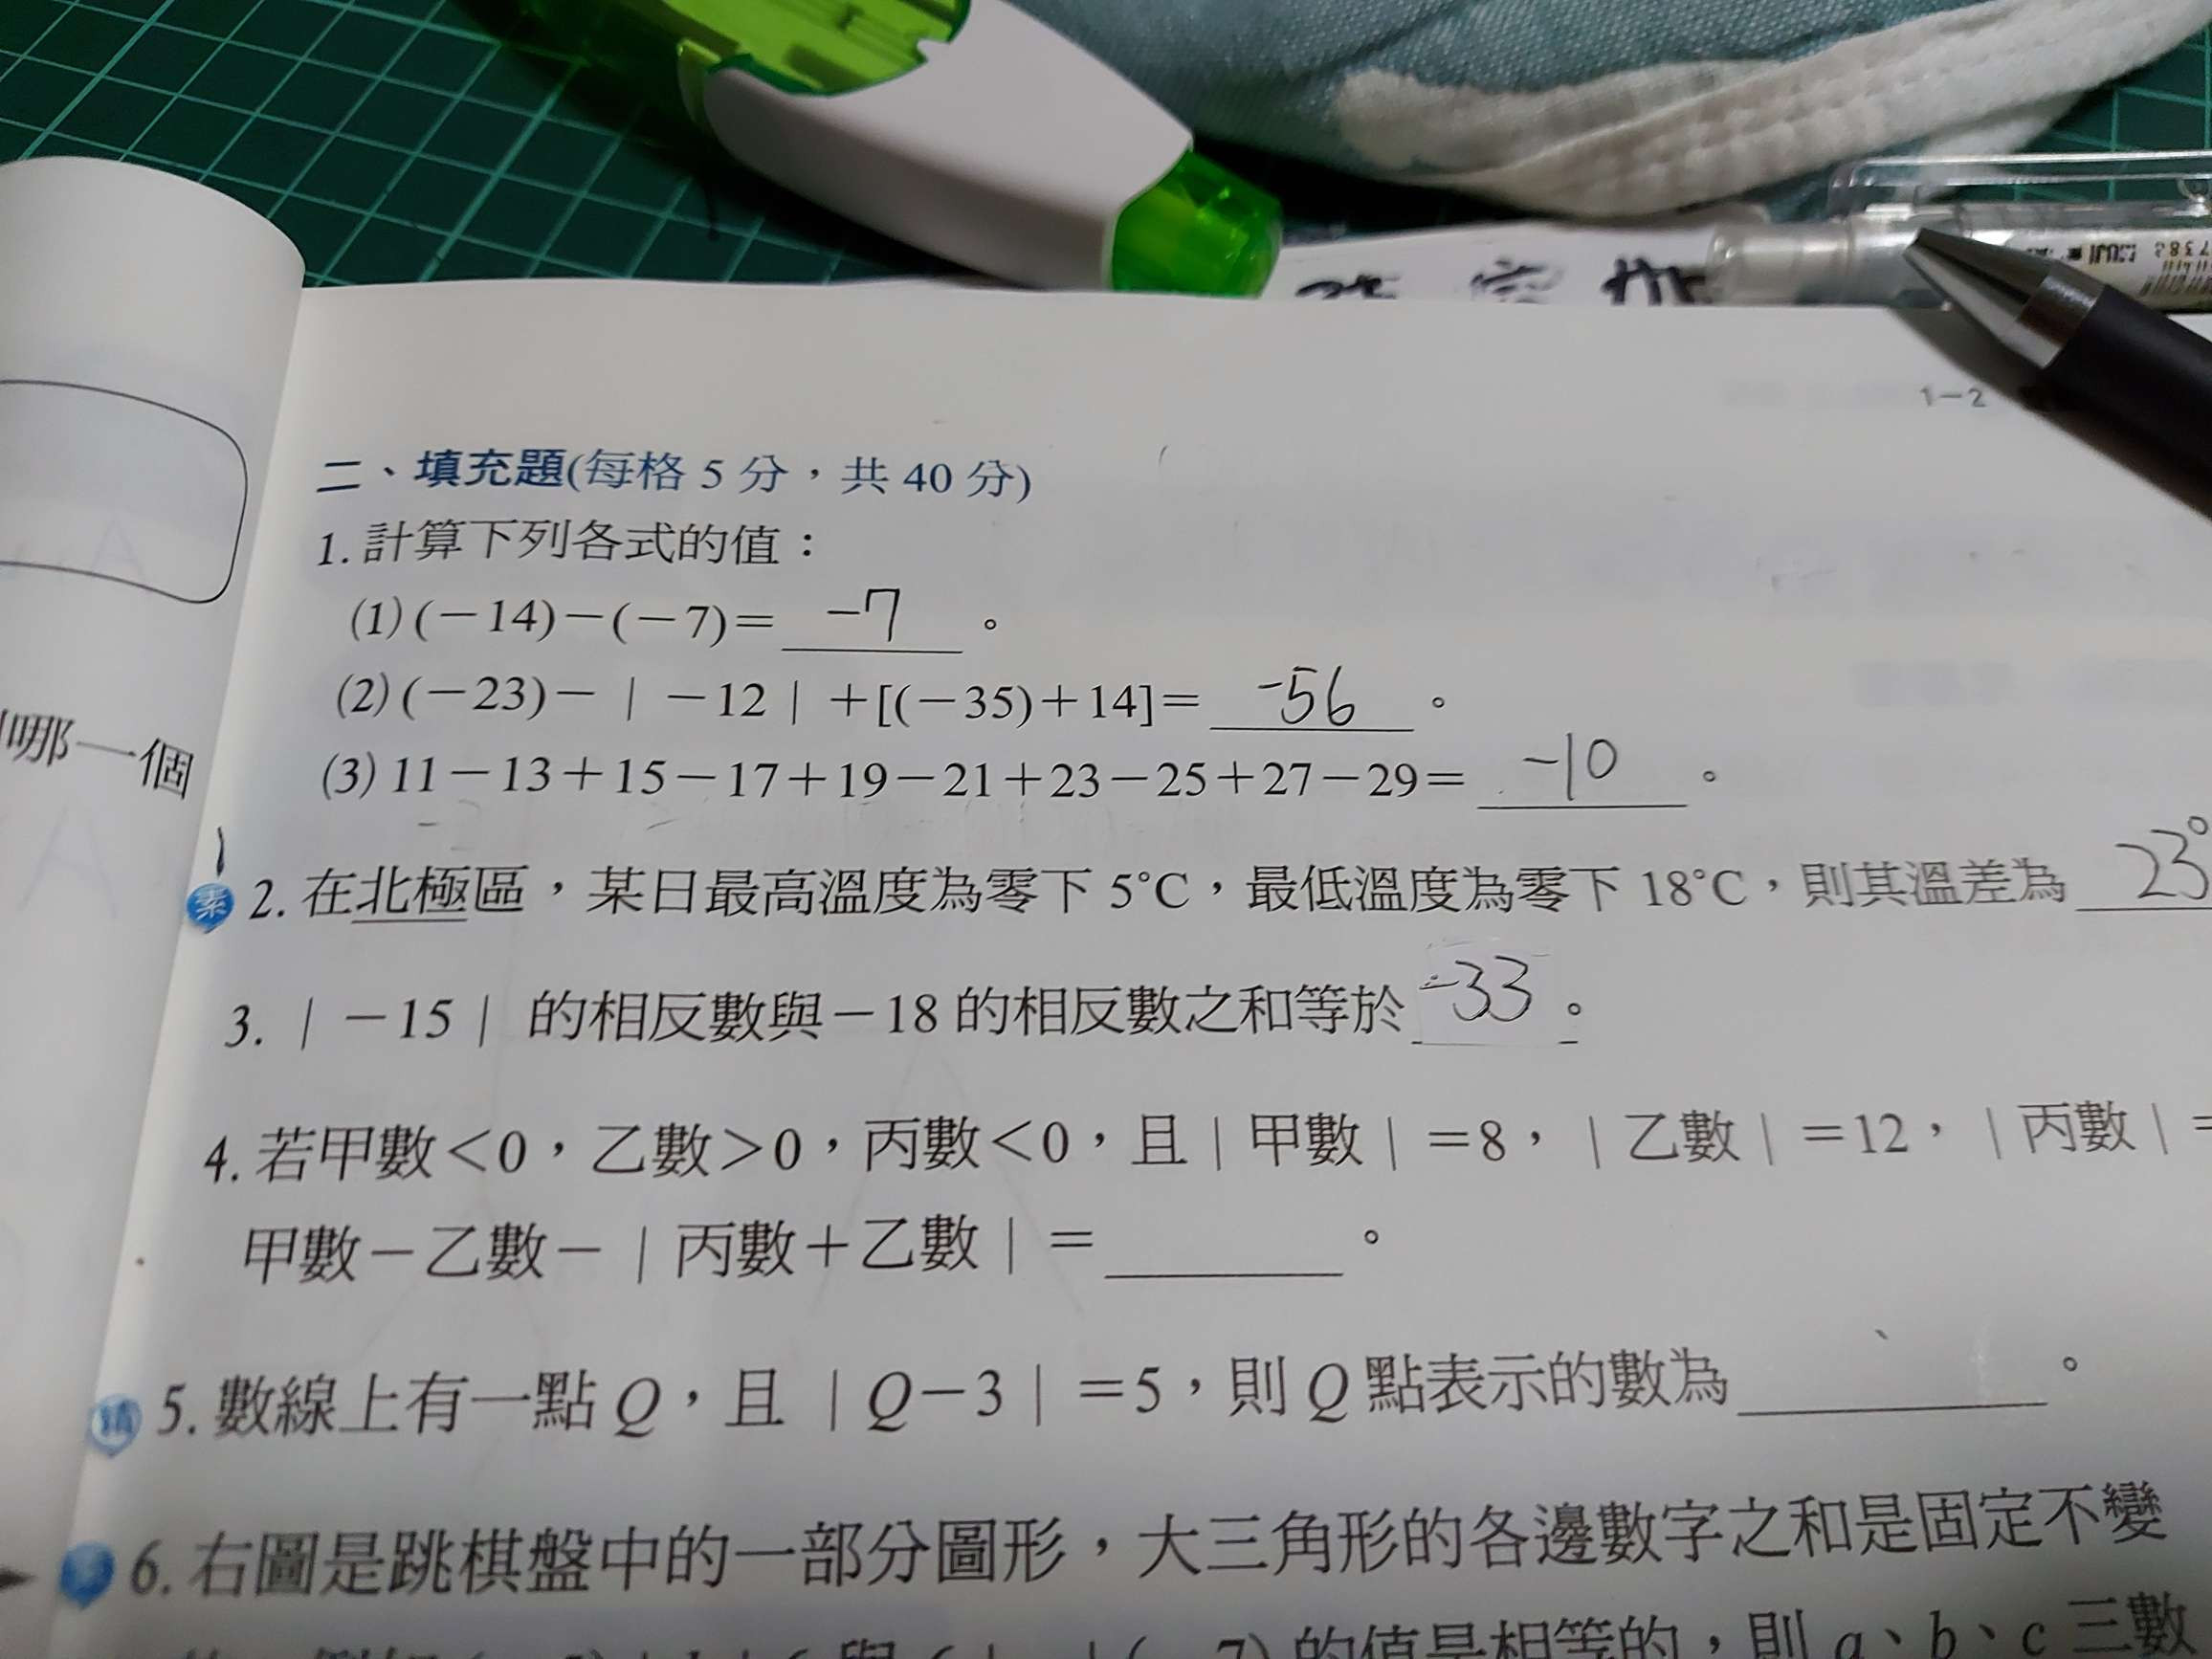 1－2
二、填充題(每格 5 分，共 40 分)
1. 計算下列各式的值：
(1) (－14)－(－7)＝ -7 。
(2) (－23)－｜－12｜＋[(－35)＋14]＝ -56 。
(3) 11－13＋15－17＋19－21＋23－25＋27－29＝ -10 。
哪一個
素 2. 在北極區，某日最高溫度為零下 5°C，最低溫度為零下 18°C，則其溫差為 23°
3. ｜－15｜ 的相反數與－18 的相反數之和等於 -33 。
4. 若甲數＜0，乙數＞0，丙數＜0，且｜甲數｜＝8，｜乙數｜＝12，｜丙數｜＝
甲數－乙數－｜丙數＋乙數｜＝ 。
5. 數線上有一點 Q，且 ｜Q－3｜＝5，則 Q 點表示的數為 。
6. 右圖是跳棋盤中的一部分圖形，大三角形的各邊數字之和是固定不變
的值是相等的，則 a、b、c 三數